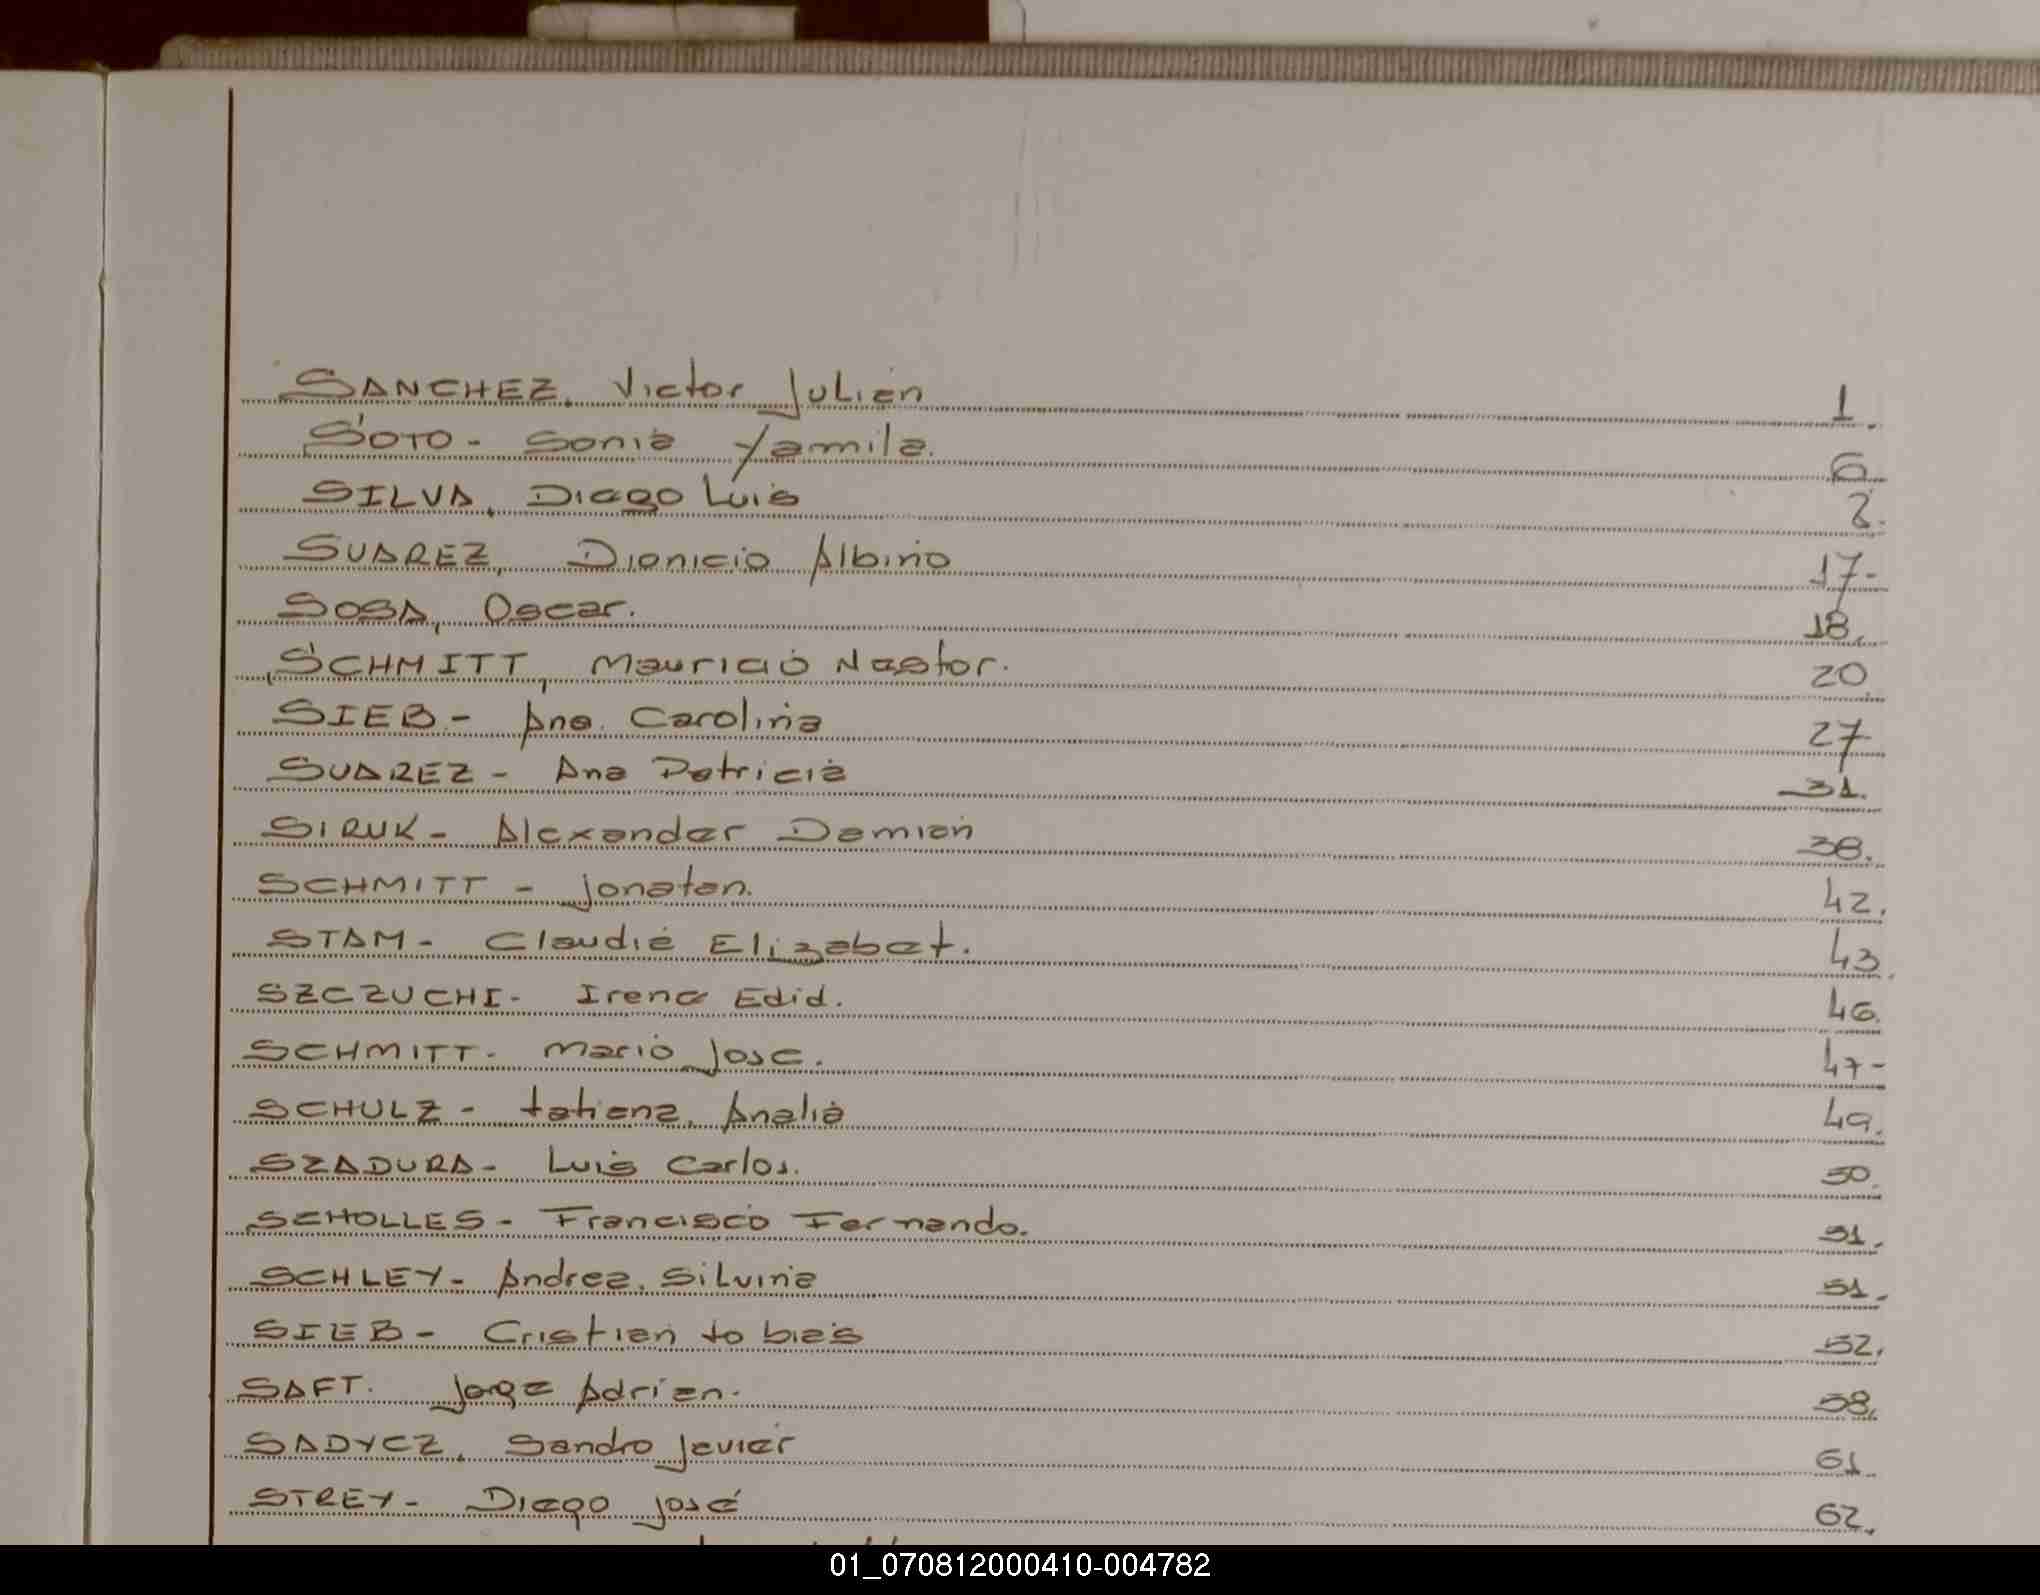 SANCHEZ, Victor Julian 1.
SOTO - Sonia Yamila. 6
SILVA, Diego Luis 8.
SUAREZ, Dionicio Albino 17-
SOSA, Oscar. 18.
SCHMITT, Mauricio Nestor. 20
SIEB - Ana Carolina 27
SUAREZ - Ana Patricia 31.
SIRUK - Alexander Damian 38.
SCHMITT - Jonatan. 42.
STAM - Claudia Elizabet. 43.
SZCZUCHI - Irene Edid. 46.
SCHMITT - Mario Jose. 47-
SCHULZ - tatiana Analia 49.
SZADURA - Luis Carlos. 50.
SCHOLLES - Francisco Fernando. 51.
SCHLEY - Andrea Silvina 51.
SIEB - Cristian tobias 52.
SAFT. Jorge Adrian. 58.
SADYCZ, Sandro Javier 61.
STREY - Diego José 62.
01_070812000410-004782